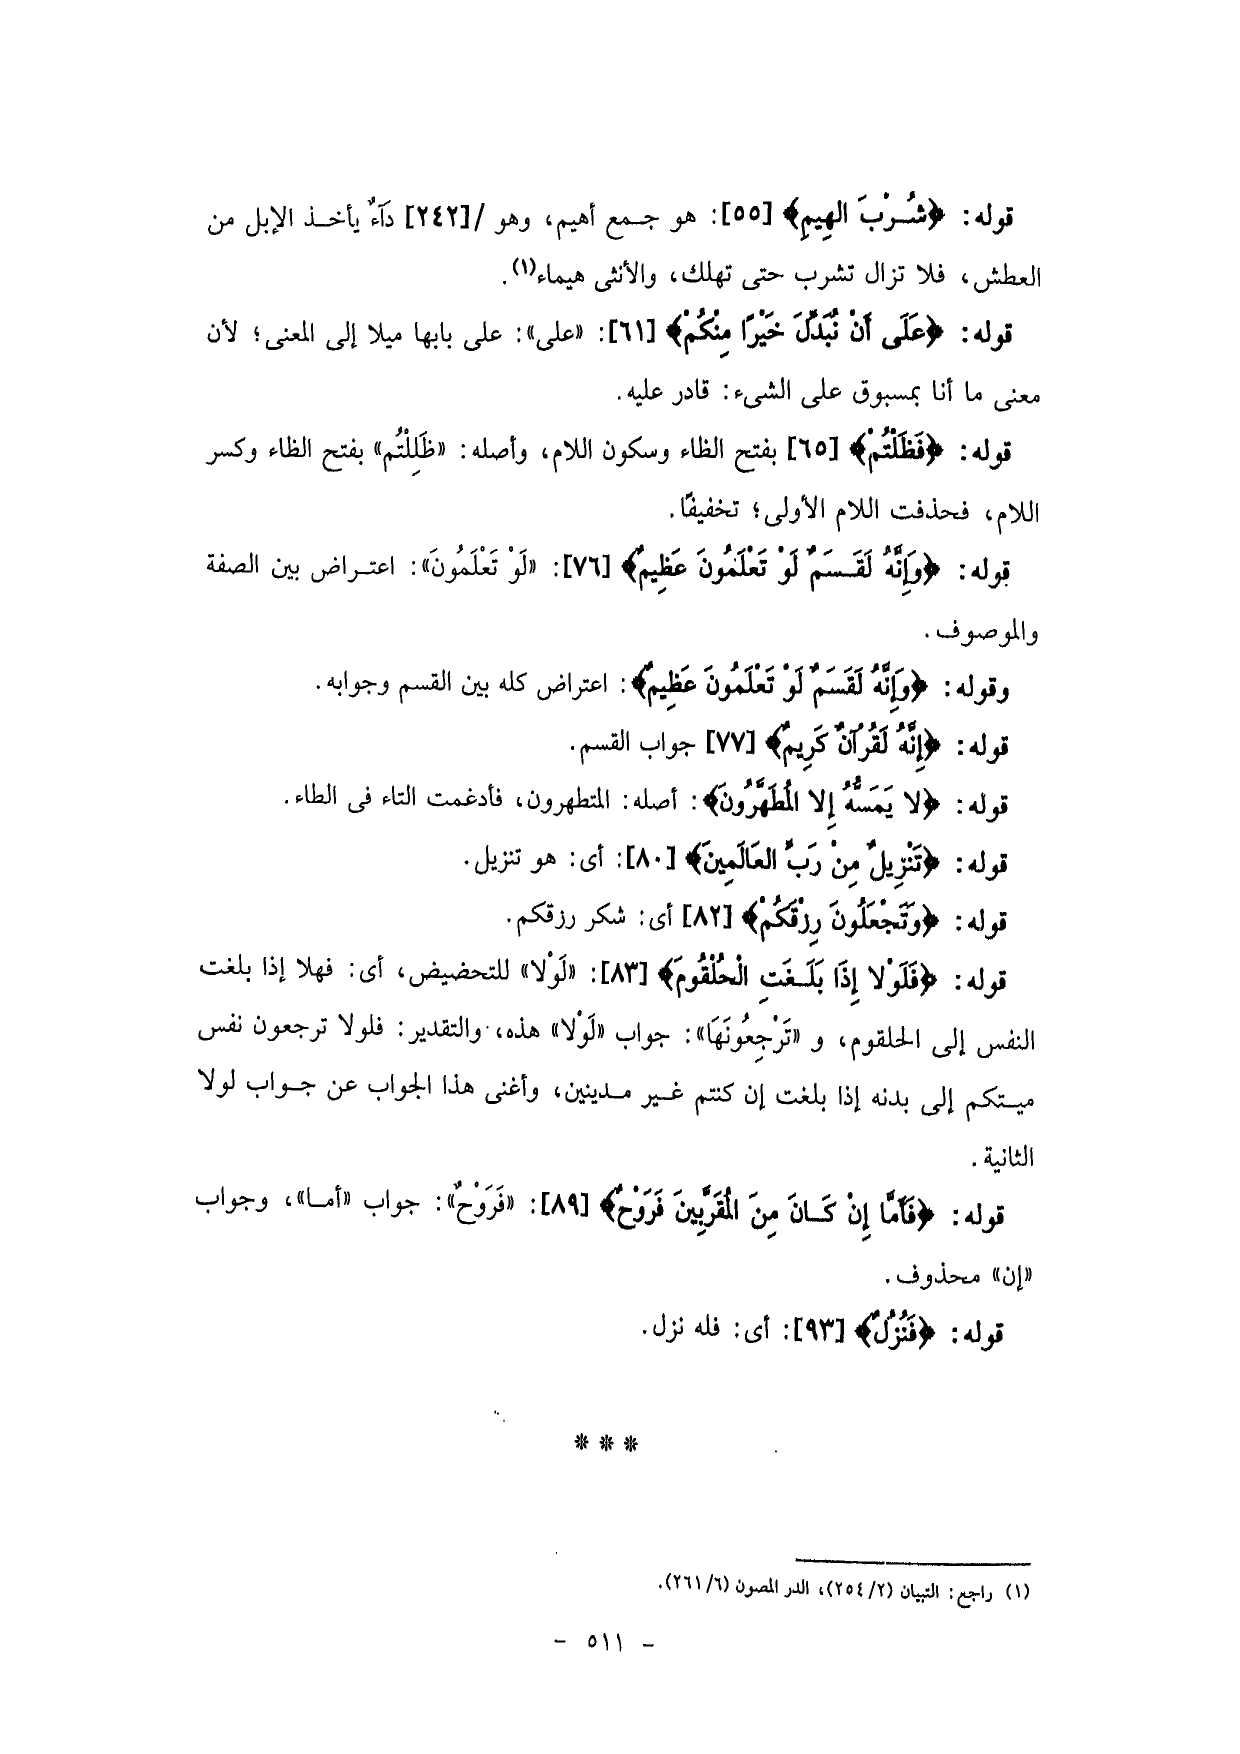 قوله: ﴿شُرْبَ الهِيمِ﴾ [٥٥]: هو جمع أهيم، وهو /[٢٤٢] دَآءٌ يأخذ الإبل من
العطش، فلا تزال تشرب حتى تهلك، والأنثى هيماء(١).
قوله: ﴿عَلَى أَنْ نُبَدِّلَ خَيْرًا مِنْكُمْ﴾ [٦١]: «على»: على بابها ميلا إلى المعنى؛ لأن
معنى ما أنا بمسبوق على الشىء: قادر عليه.
قوله: ﴿فَظَلْتُمْ﴾ [٦٥] بفتح الظاء وسكون اللام، وأصله: «ظَلِلْتُم» بفتح الظاء وكسر
اللام، فحذفت اللام الأولى؛ تخفيفًا.
قوله: ﴿وَإِنَّهُ لَقَسَمٌ لَوْ تَعْلَمُونَ عَظِيمٌ﴾ [٧٦]: «لَوْ تَعْلَمُونَ»: اعتراض بين الصفة
والموصوف.
وقوله: ﴿وَإِنَّهُ لَقَسَمٌ لَوْ تَعْلَمُونَ عَظِيمٌ﴾: اعتراض كله بين القسم وجوابه.
قوله: ﴿إِنَّهُ لَقُرآنٌ كَرِيمٌ﴾ [٧٧] جواب القسم.
قوله: ﴿لا يَمَسُّهُ إِلا المُطَهَّرُونَ﴾: أصله: المتطهرون، فأدغمت التاء فى الطاء.
قوله: ﴿تَنْزِيلٌ مِنْ رَبِّ العَالَمِينَ﴾ [٨٠]: أى: هو تنزيل.
قوله: ﴿وَتَجْعَلُونَ رِزْقَكُمْ﴾ [٨٢] أى: شكر رزقكم.
قوله: ﴿فَلَوْلا إِذَا بَلَغَتِ الْحُلْقُومَ﴾ [٨٣]: «لَوْلا» للتحضيض، أى: فهلا إذا بلغت
النفس إلى الحلقوم، و «تَرْجِعُونَهَا»: جواب «لَوْلا» هذه، والتقدير: فلولا ترجعون نفس
ميتكم إلى بدنه إذا بلغت إن كنتم غير مدينين، وأغنى هذا الجواب عن جواب لولا
الثانية.
قوله: ﴿فَأَمَّا إِنْ كَانَ مِنَ المُقَرَّبِينَ فَرَوْحٌ﴾ [٨٩]: «فَرَوْحٌ»: جواب «أما»، وجواب
«إن» محذوف.
قوله: ﴿فَنُزُلٌ﴾ [٩٣]: أى: فله نزل.
***
(١) راجع: التبيان (٢/٢٥٤)، الدر المصون (٦/٢٦١).
- ٥١١ -